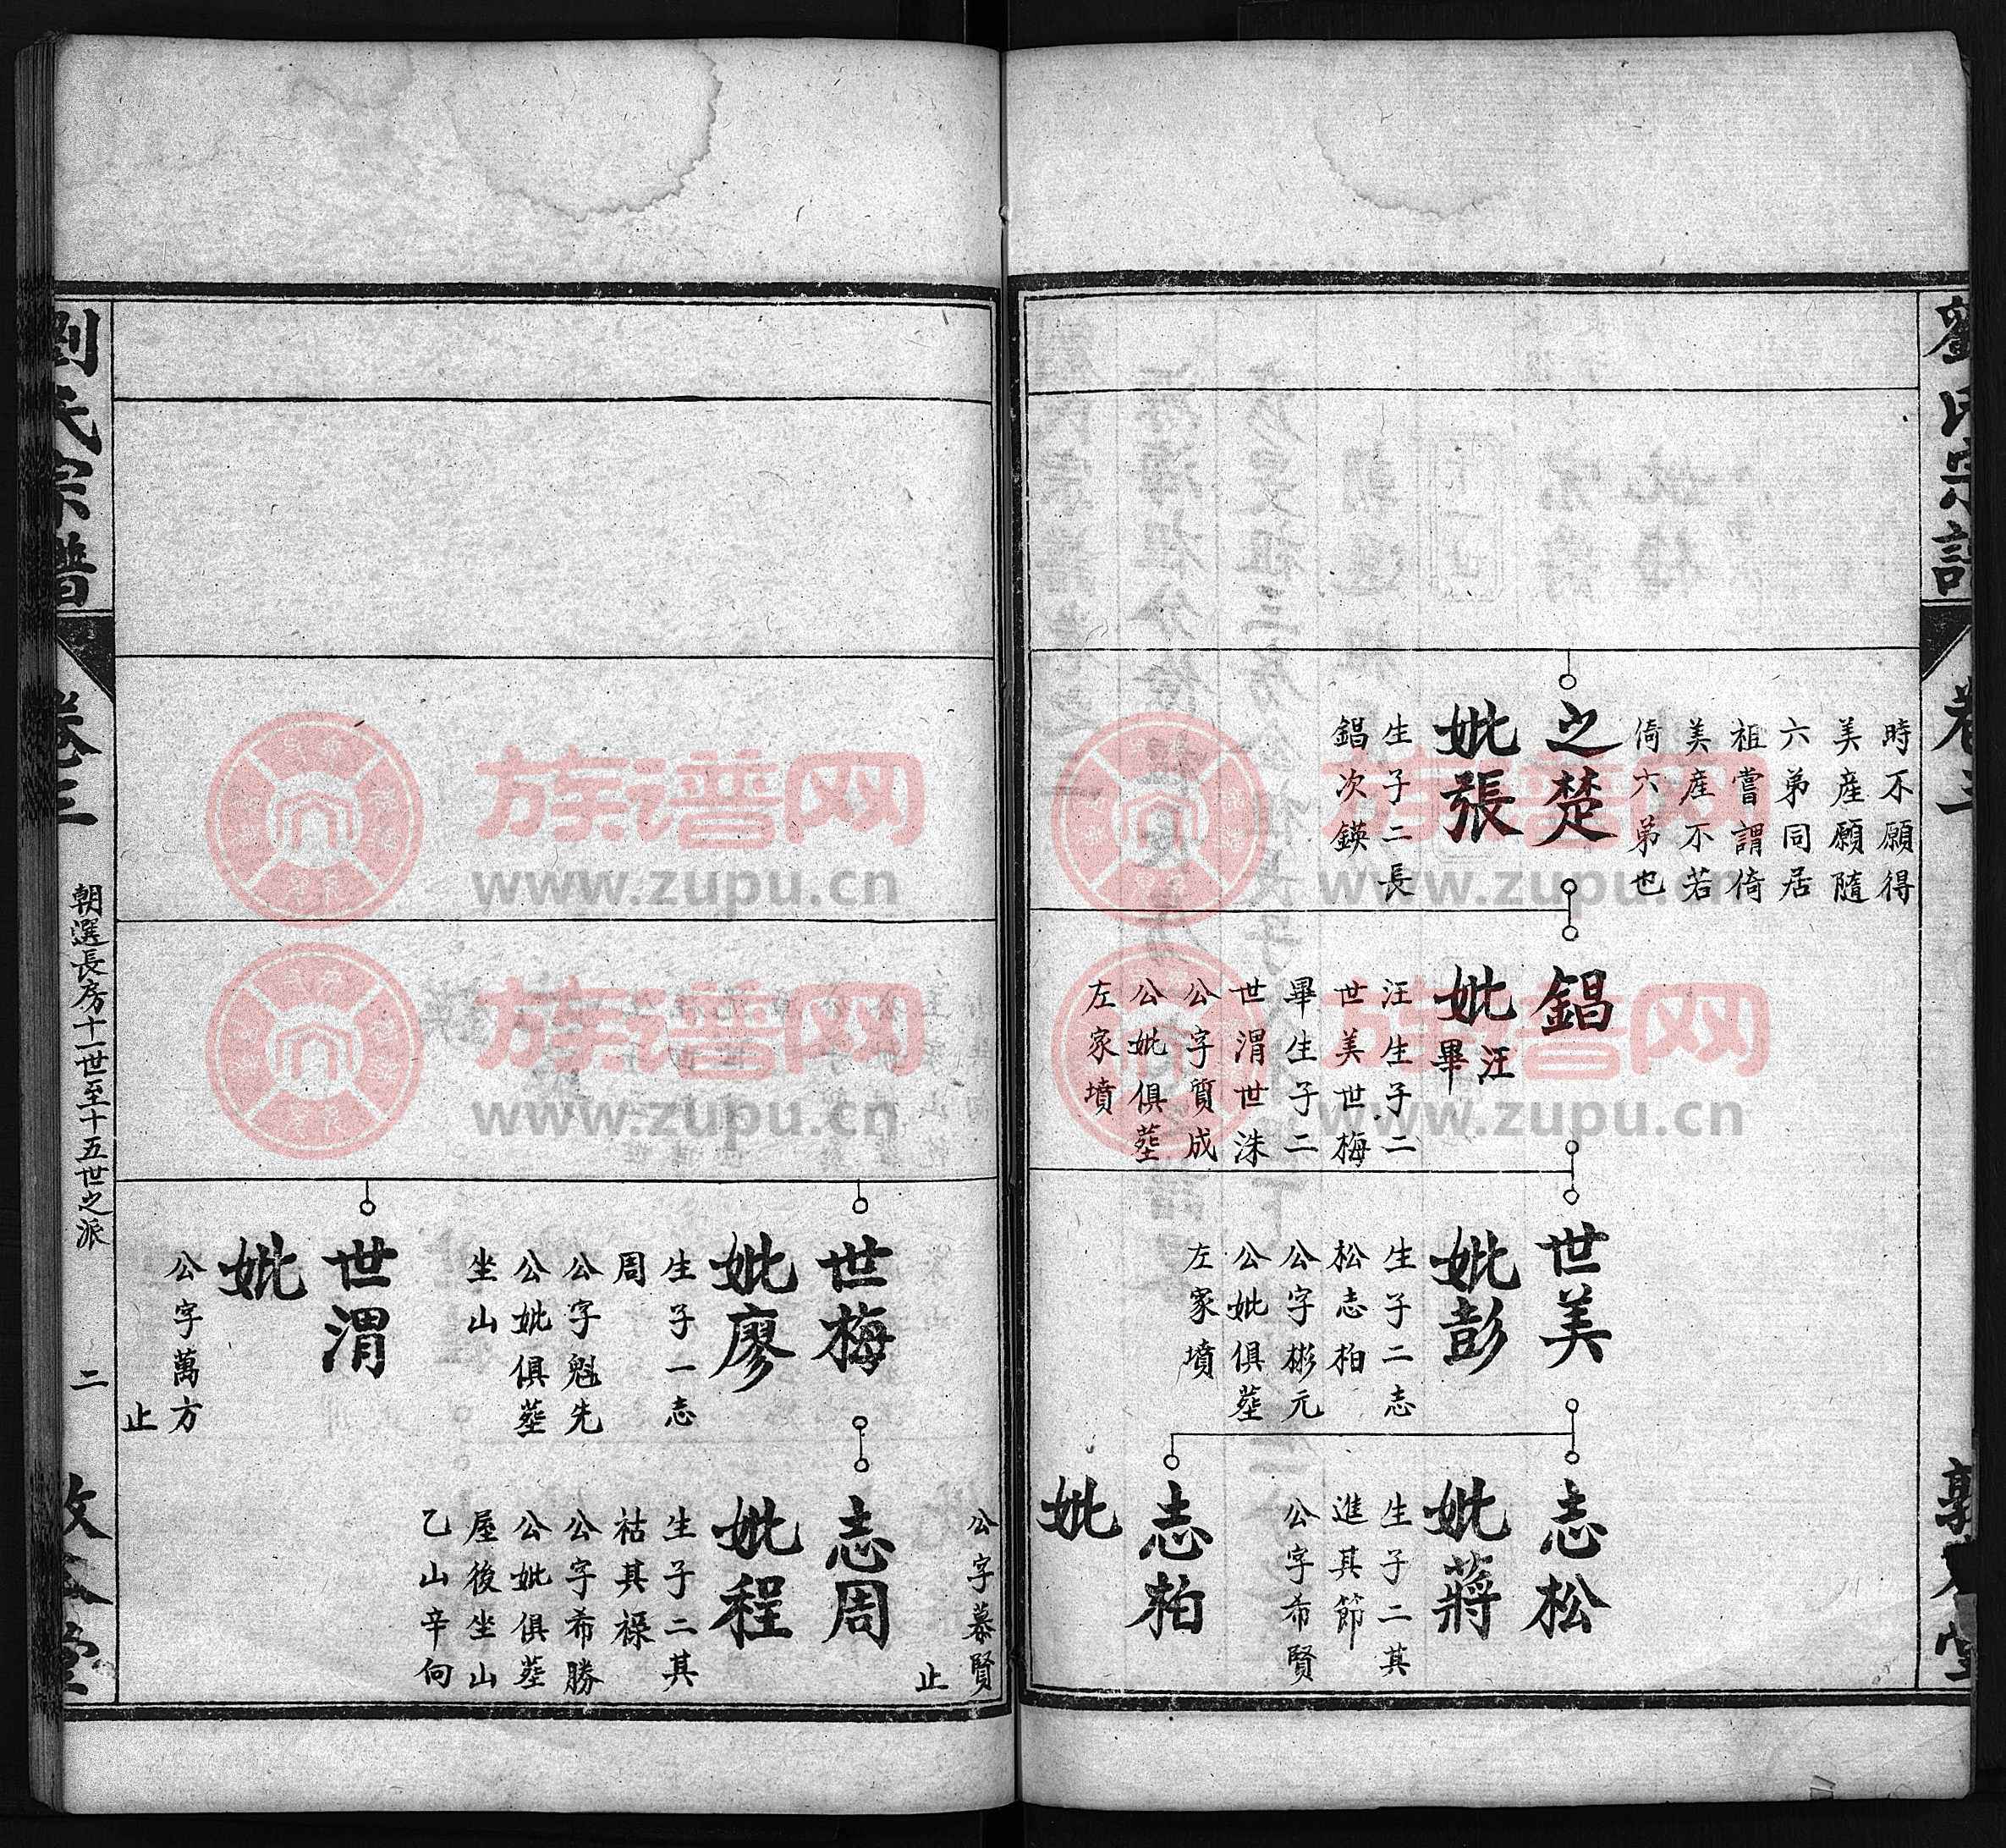 劉氏宗譜
卷三
敦
堂
時不願得
美産願隨
六弟同居
祖嘗謂倚
美産不若
倚六弟也
之楚
妣張
生子二長
錩次鍈
錩
妣汪
畢
汪生子二
世美世梅
畢生子二
世渭世洙
公字質成
公妣俱塟
左家墳
世美
妣彭
生子二志
松志柏
公字彬元
公妣俱塟
左家墳
志松
妣蔣
生子二其
進其節
公字希賢
志柏
妣
公字慕賢
止
世梅
妣廖
生子一志
周
公字魁先
公妣俱塟
坐山
志周
妣程
生子二其
祜其祿
公字希勝
公妣俱塟
屋後坐山
乙山辛向
世渭
妣
公字萬方
止
劉氏宗譜
卷三
朝選長房十一世至十五世之派
二
堂
族谱网
www.zupu.cn
族谱网
www.zupu.cn
族谱网
www.zupu.cn
族谱网
www.zupu.cn